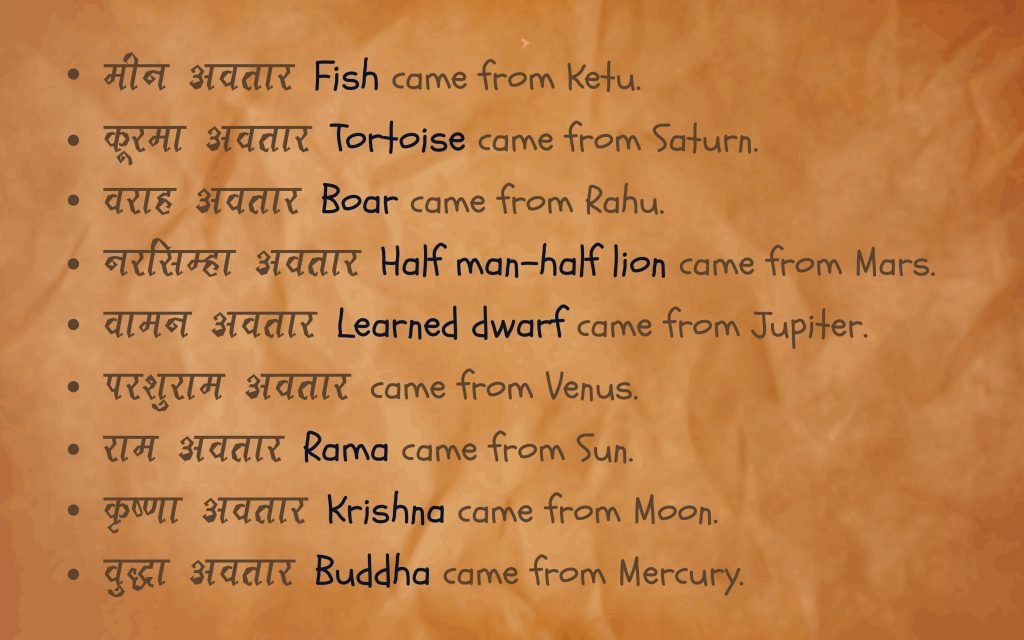 • मीन अवतार Fish came from Ketu.
• कूरमा अवतार Tortoise came from Saturn.
• वराह अवतार Boar came from Rahu.
• नरसिम्हा अवतार Half man-half lion came from Mars.
• वामन अवतार Learned dwarf came from Jupiter.
• परशुराम अवतार came from Venus.
• राम अवतार Rama came from Sun.
• कृष्णा अवतार Krishna came from Moon.
• वुद्धा अवतार Buddha came from Mercury.